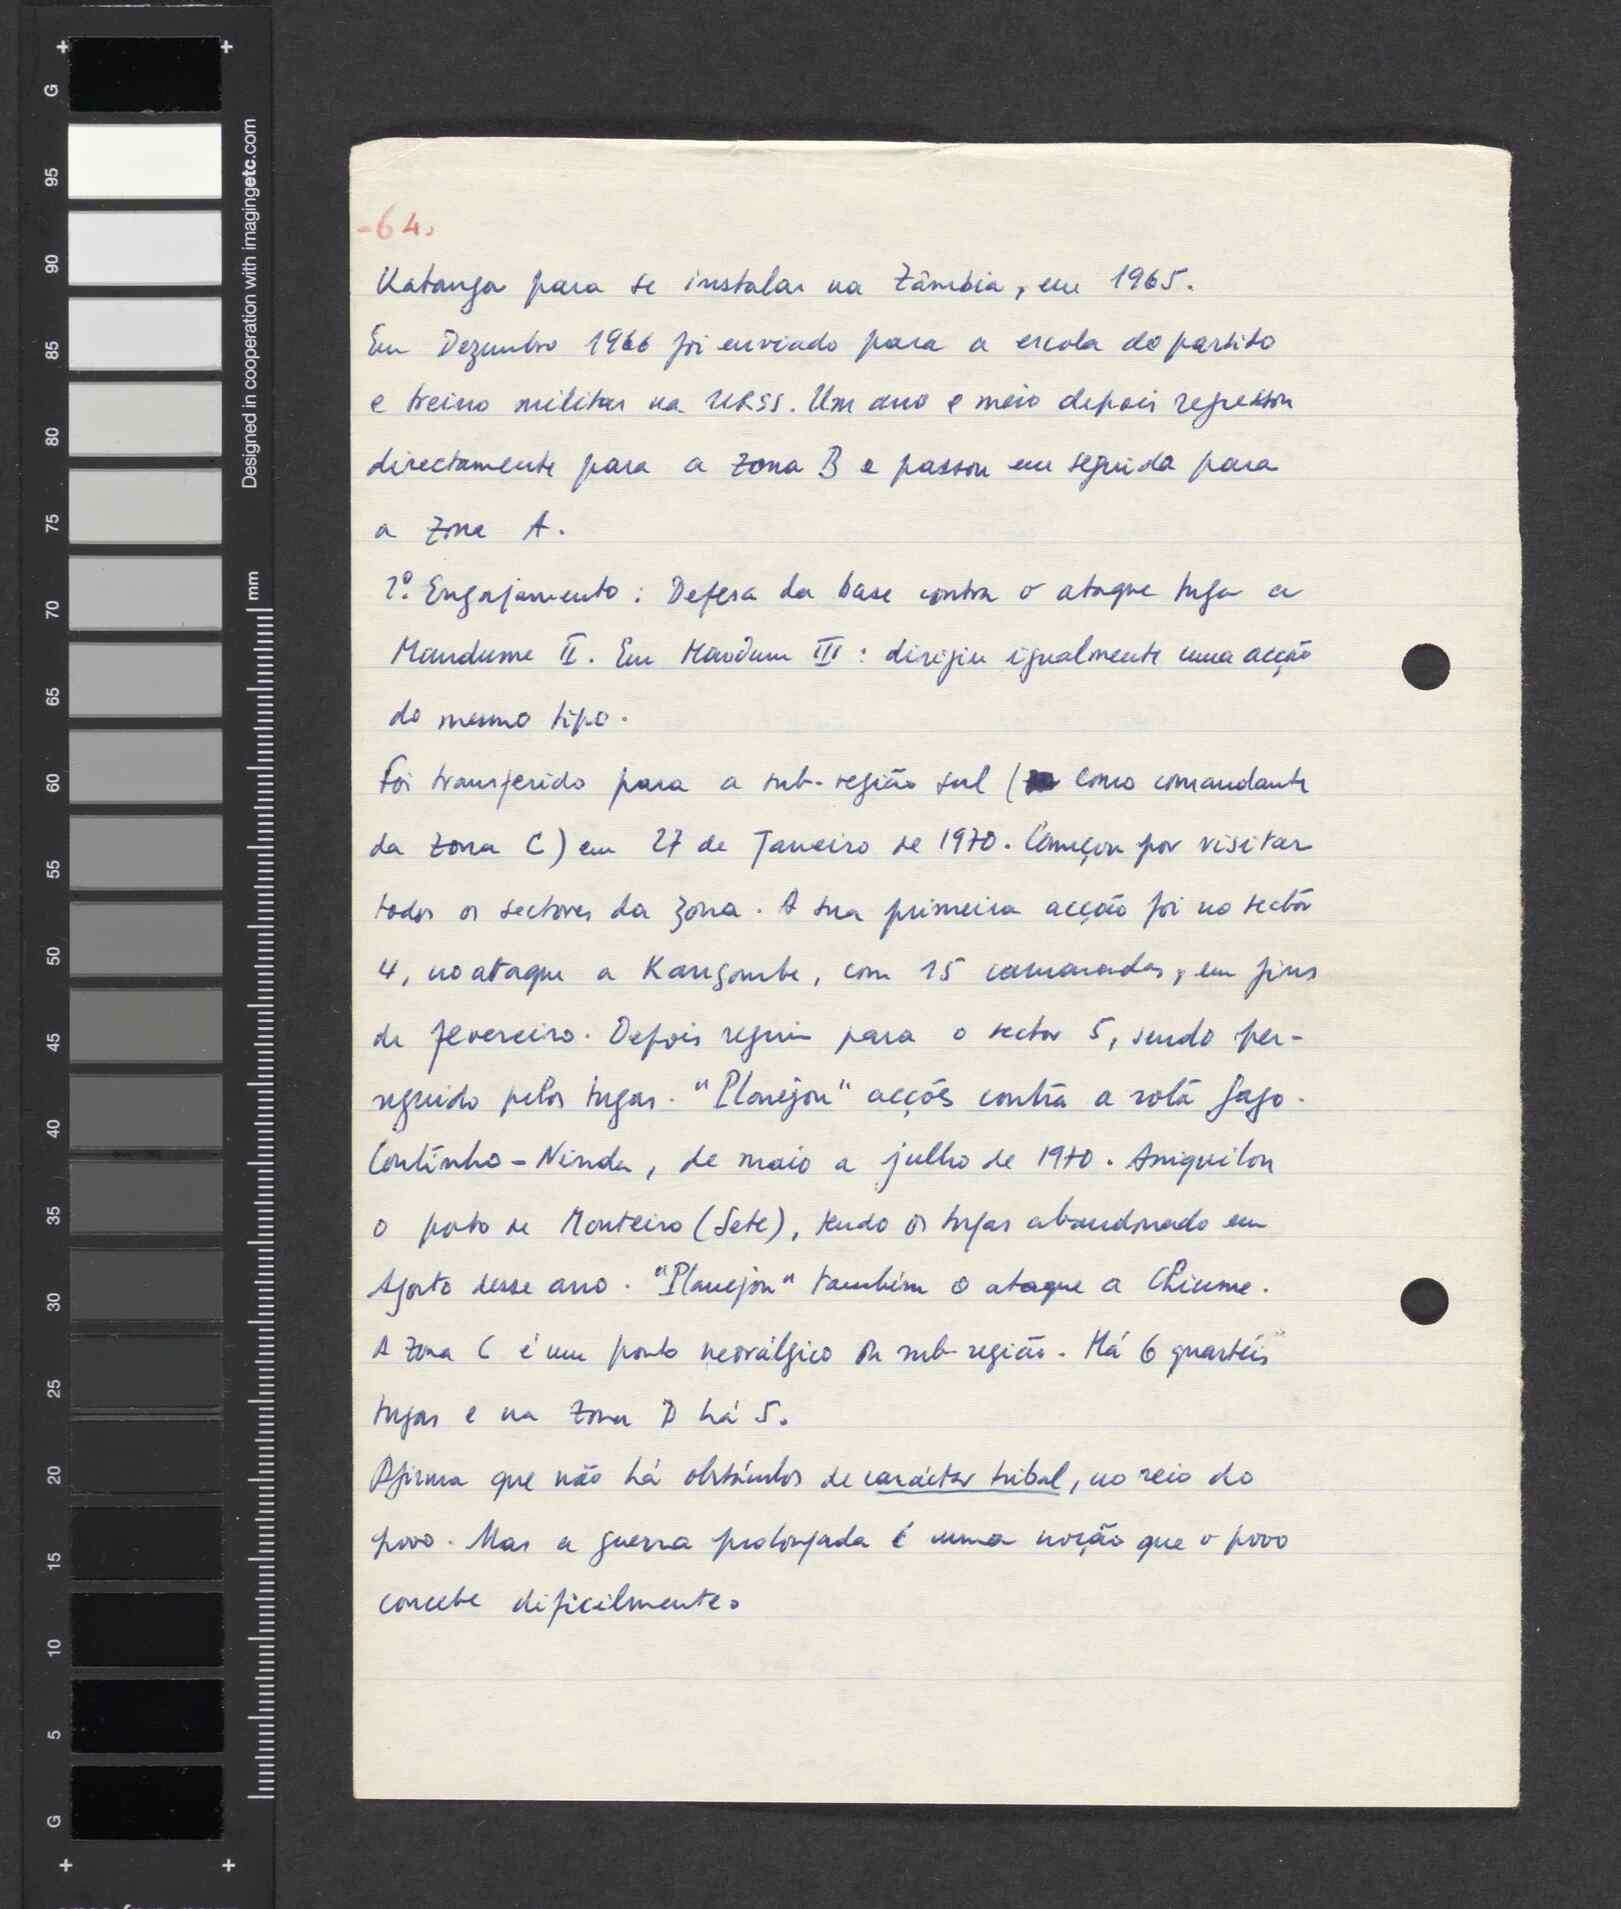 -64.
Katanga para se instalar na Zâmbia, em 1965.
Em Dezembro 1966 foi enviado para a escola do partido
e treino militar na URSS. Um ano e meio depois regressou
directamente para a zona B e passou em seguida para
a zona A.
1º Engajamento: Defesa da base contra o ataque tuga a
Mandume II. Em Mandume III: dirigiu igualmente uma acção
do mesmo tipo.
Foi transferido para a sub-região sul (como comandante
da zona C) em 27 de Janeiro de 1970. Começou por visitar
todos os sectores da zona. A sua primeira acção foi no sector
4, no ataque a Kangombe, com 15 camaradas, em fins
de fevereiro. Depois seguiu para o sector 5, sendo per-
seguido pelos tugas. "Planejou" acções contra a rota Gago-
Coutinho-Ninda, de maio a julho de 1970. Aniquilou
o posto de Monteiro (Sete), tendo os tugas abandonado em
Agosto desse ano. "Planejou" também o ataque a Chiume.
A zona C é um ponto nevrálgico da sub-região. Há 6 quartéis
tugas e na zona D há 5.
Afirma que não há obstáculos de carácter tribal, no seio do
povo. Mas a guerra prolongada é uma noção que o povo
concebe dificilmente.
G
95
90
85
80
75
70
65
60
55
50
45
40
35
30
25
20
15
10
5
G
Designed in cooperation with imagingetc.com
mm